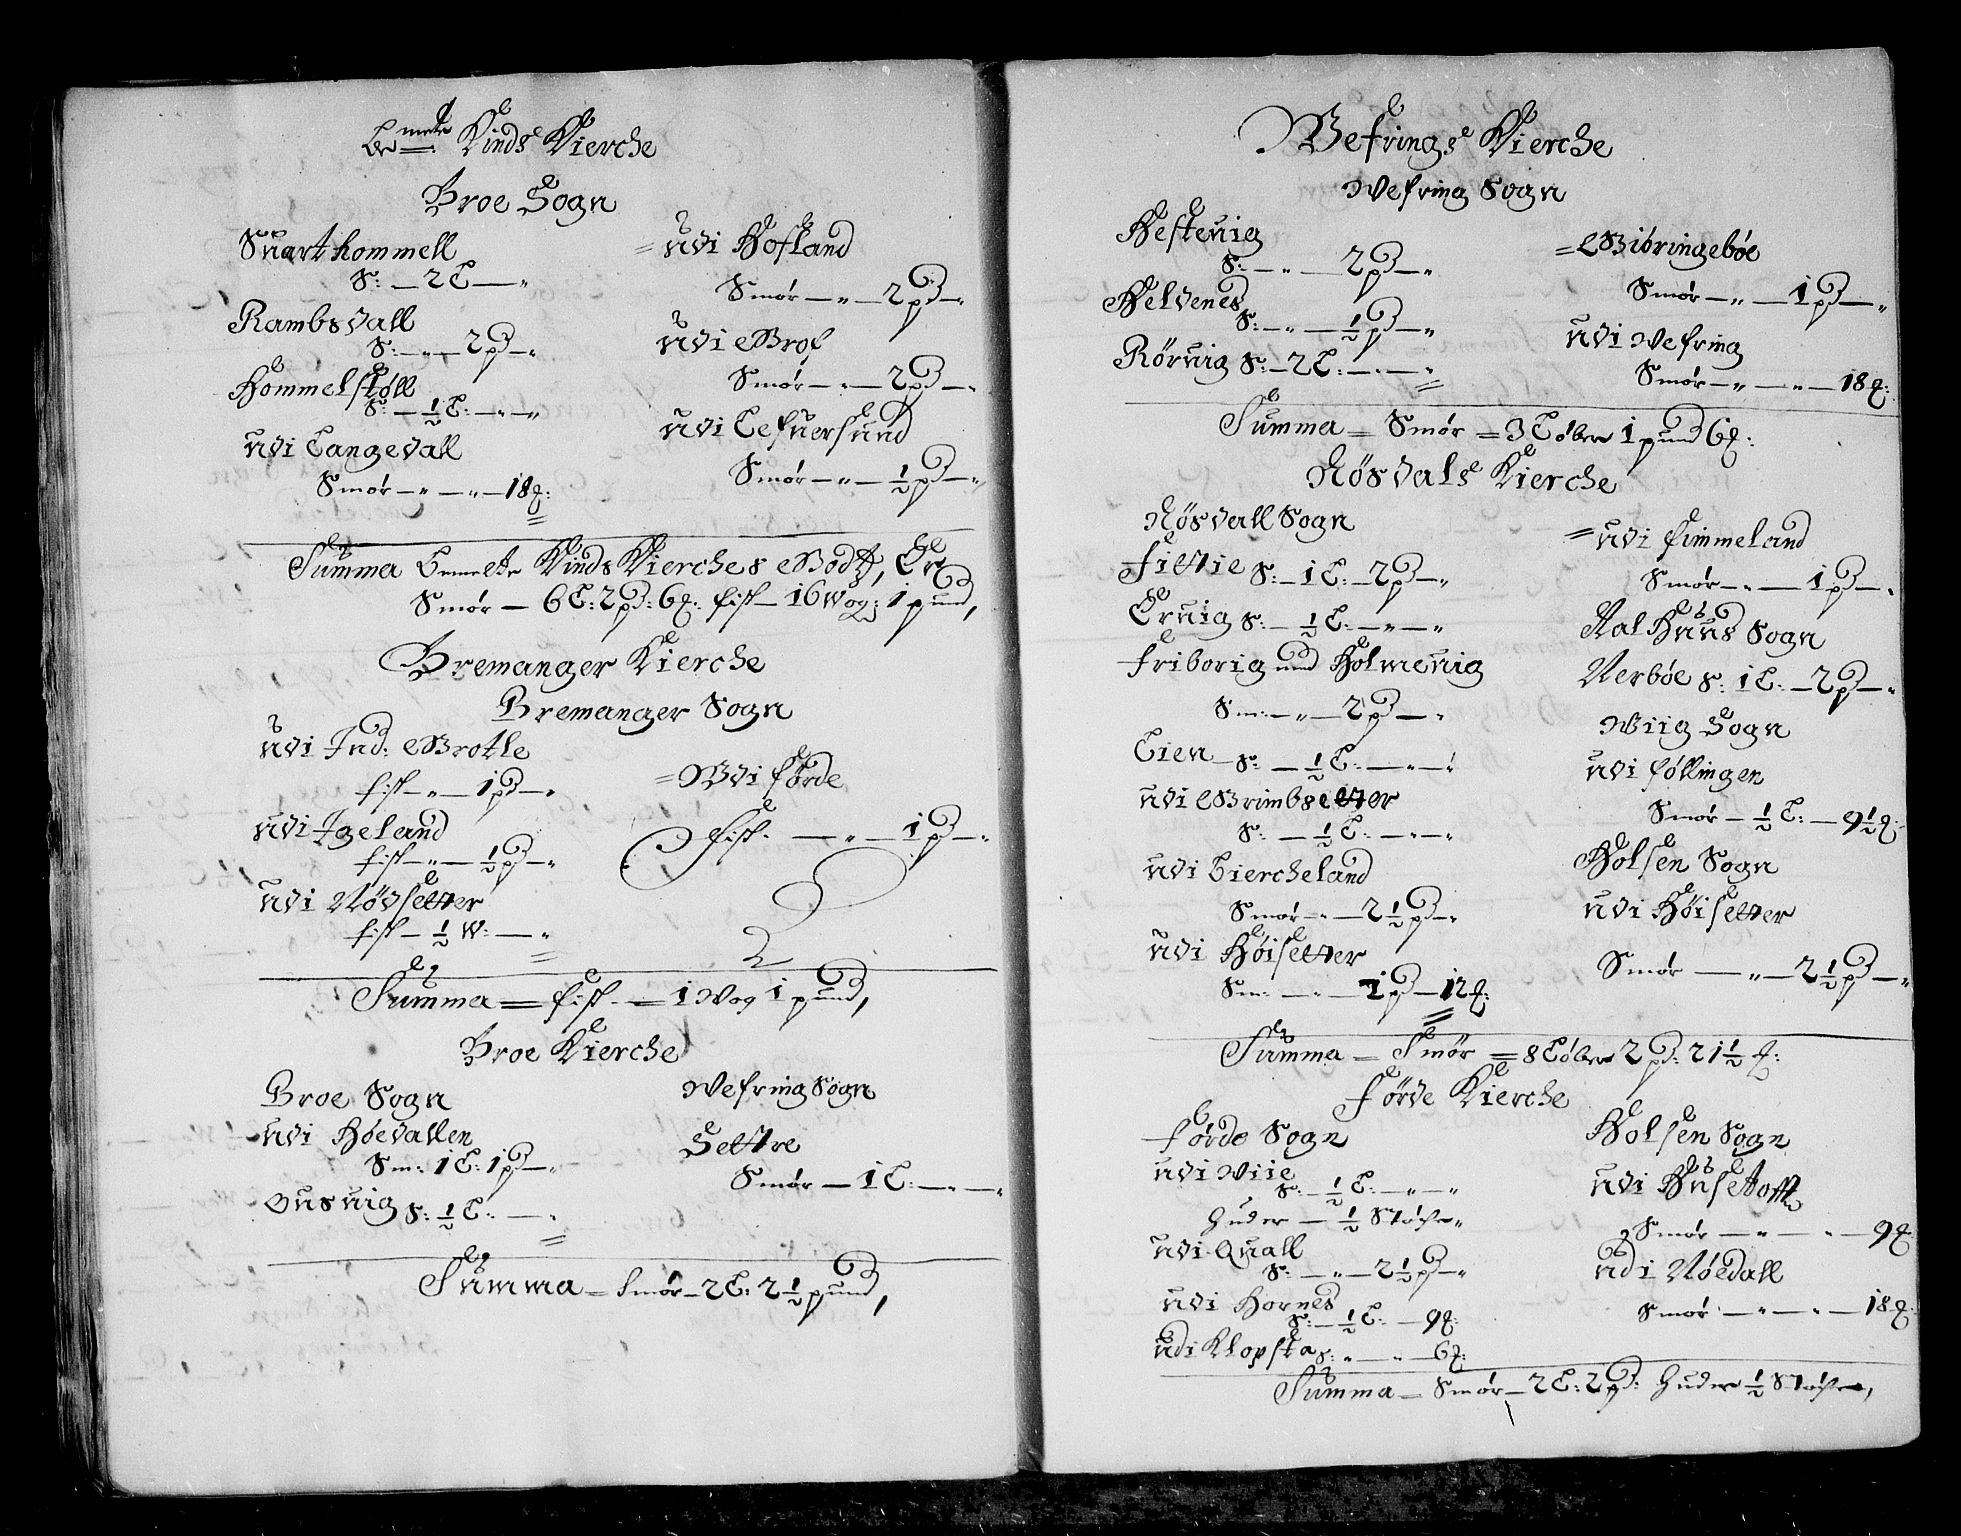 Bemelte Kinds Kierche
Broe Sogn
Suarthommell
S: — 2 T — "
Rambsdall
S: — " — 2 pd — "
Hommelstøll
S: — ½ T: — " — "
udi Tangedall
Smør — " — " — 18 l:
= udi Hofland
Smør — " — 2 pd — "
udi Grof
Smør — " — 2 pd — "
udi Tefuersund
Smør — " — ½ pd — "
Summa bemelte Kinds Kierches Godtz, Er
Smør — 6 T: 2 pd: 6 l: fisk — 16 Wog: 1 pund,
Bremanger Kierche
Bremanger Sogn
udi Ind: Grotle
fisk — " — 1 pd — "
udi Igeland
fisk — " — ½ pd — "
udi Nødsetter
fisk — ½ W: — "
= Udi förde
fisk. — " — 1 pd — "
Summa = fisk — 1 Wog 1 pund,
Broe Kierche
Broe Sogn
udi Høedallen
Sm: 1 T: 1 pd — "
Ousuig S: ½ T: — "
Wefring Sogn
Settre
Smør — 1 T: — " — "
Summa = Smør — 2 T: 2 ½ pund,
Wefrings Kierche
Wefring Sogn
Hesteuig
S: — " — 2 pd — "
Heldenes
S: — " — ½ pd — "
Röruig S: — 2 T: — " — "
= Giöringebøe
Smør — " — 1 pd — "
udi Wefring
Smør — " — " — 18 l:
Summa = Smør = 3 Tøber 1 pund 6 l:
Nösdals Kierche
Nösdall Sogn
Fittie S: — 1 T: — 2 pd — "
Eruig S: — ½ T: — " — "
Friborig und Holmeuig
Sm: — " — 2 pd — "
Tien S: — ½ T: — " — "
udi Grimbsetter
S: — ½ T: — " — "
udi Biercheland
Smør — " — 2 ½ pd — "
udi Høisetter
Sm: — " — 1 pd — 12 l:
= udi fimmeland
Smør — " — 1 pd — "
Aalhuus Sogn
Nerbøe S: 1 T: — 2 pd — "
Wiig Sogn
udi föllingen
Smør — ½ T: — 9 ½ l:
Holsen Sogn
udi Høisetter
Smør — " — 2 ½ pd — "
Summa = Smör = 8 Tøber 2 pd: 21 ½ l:
Förde Kierche
Förde Sogn
udi Wiie
S: — ½ T: — " — "
Huder — ½ Støche "
udi Quall
S: — " — 2 ½ pd — "
udi Hornes
S: — ½ T: — 9 l:
udi Klopsta S: " — " — 6 l:
Holsen Sogn
udi Husetofft
Smør — " — " — 9 l:
udi Nöedall
Smør — " — " — 18 l:
Summa — Smör — 2 T: 2 pd: Huder ½ Støche,